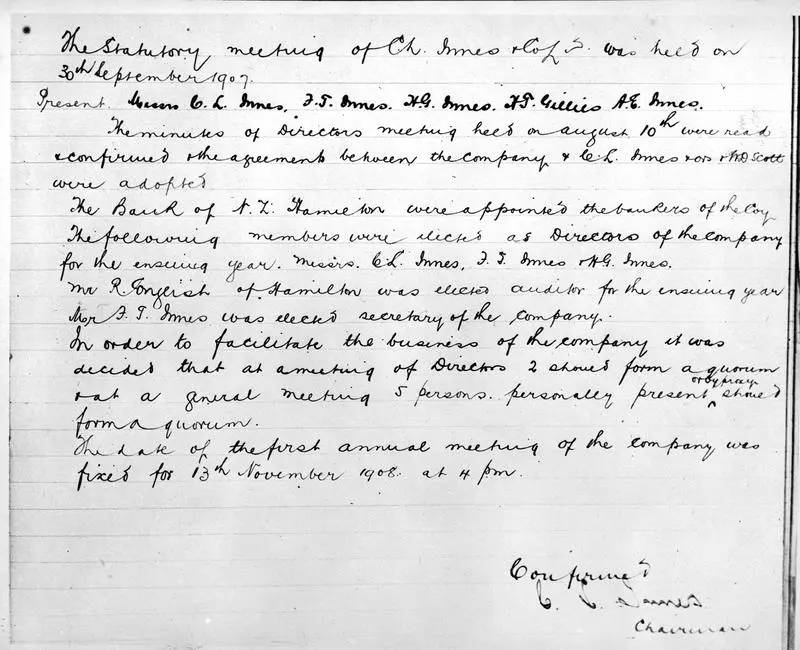 The Statutory meeting of Ch. Innes & Co Ld. was held on
30th September 1907.
Present. Messrs C. L. Innes, F. T. Innes. H G. Innes. H T. Gillies A. E. Innes.
The minutes of Directors meeting held on august 10th were read
& confirmed & the agreement between the company & C. L. Innes & ors & W D Scott
were adopted
The Bank of N. Z. Hamilton were appointed the bankers of the Coy
The following members were elected as Directors of the company
for the ensuing year. Messrs. C L. Innes, F. T. Innes & H G. Innes.
Mr R. English of Hamilton was elected auditor for the ensuing year
Mr F. T. Innes was elected secretary of the company.
In order to facilitate the business of the company it was
decided that at a meeting of Directors 2 should form a quorum
& at a general meeting 5 persons. personally present or by proxy should
form a quorum.
The date of the first annual meeting of the company was
fixed for 13th November 1908. at 4 pm.
Confirmed
C. L. Innes
Chairman